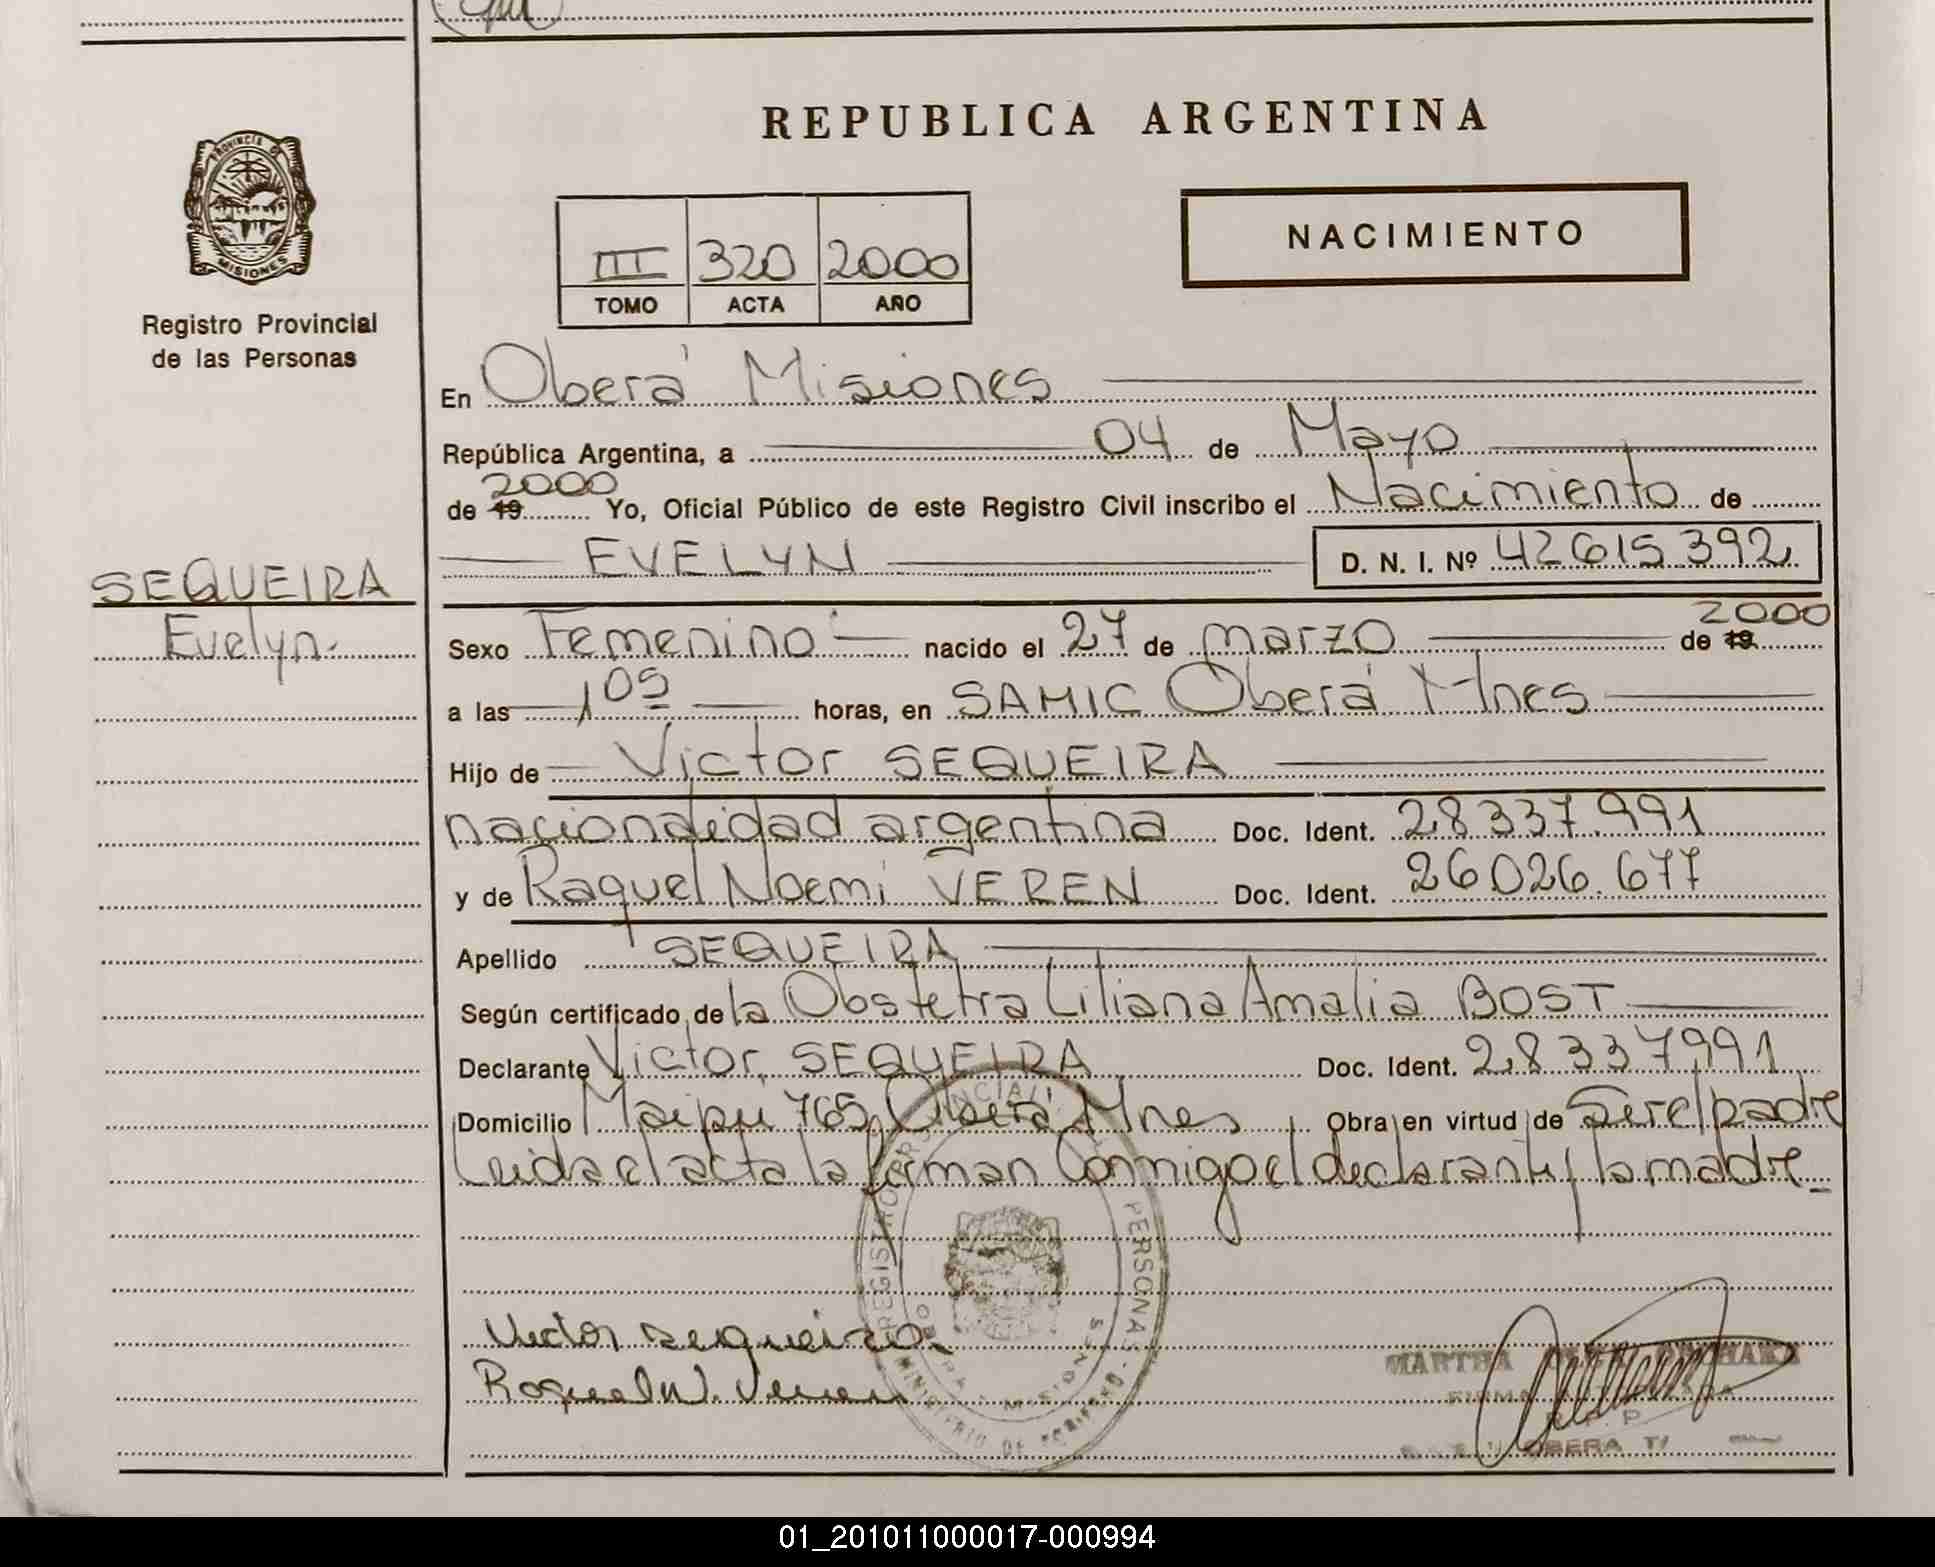 REPUBLICA ARGENTINA
PROVINCIA DE
MISIONES
Registro Provincial
de las Personas
III 320 2000
TOMO ACTA AÑO
NACIMIENTO
En Oberá Misiones
República Argentina, a 04 de Mayo
de 19 2000 Yo, Oficial Público de este Registro Civil inscribo el Nacimiento de
EVELYN D. N. I. Nº 42615.392
SEQUEIRA
Evelyn.
Sexo Femenino nacido el 27 de marzo de 19 2000
a las 1 05 horas, en SAMIC Oberá Mnes
Hijo de Victor SEQUEIRA
nacionalidad argentina Doc. Ident. 28337.991
y de Raquel Noemi VEREN Doc. Ident. 26026.677
Apellido SEQUEIRA
Según certificado de la Obstetra Liliana Amalia BOST
Declarante Victor SEQUEIRA Doc. Ident. 28337991
Domicilio Maipu 765 Oberá Mnes Obra en virtud de Ser el padre
Leida el acta la firman Conmigo el declarante y la madre
Victor Sequeira
Raquel N. Veren
MARTHA
FIRMA
OBERA
01_201011000017-000994